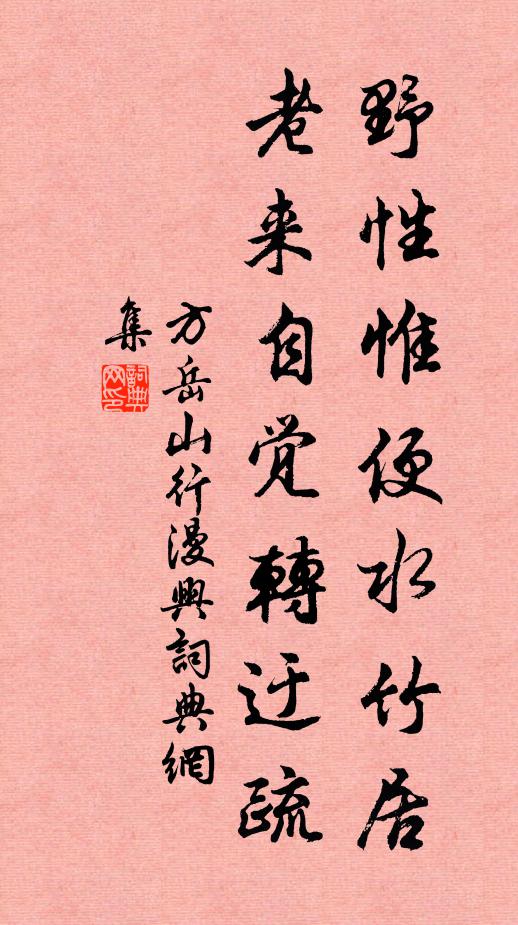 野性惟便水竹居
老来自觉轉迂疏
方岳山行漫興詞典網
集
詞典网印